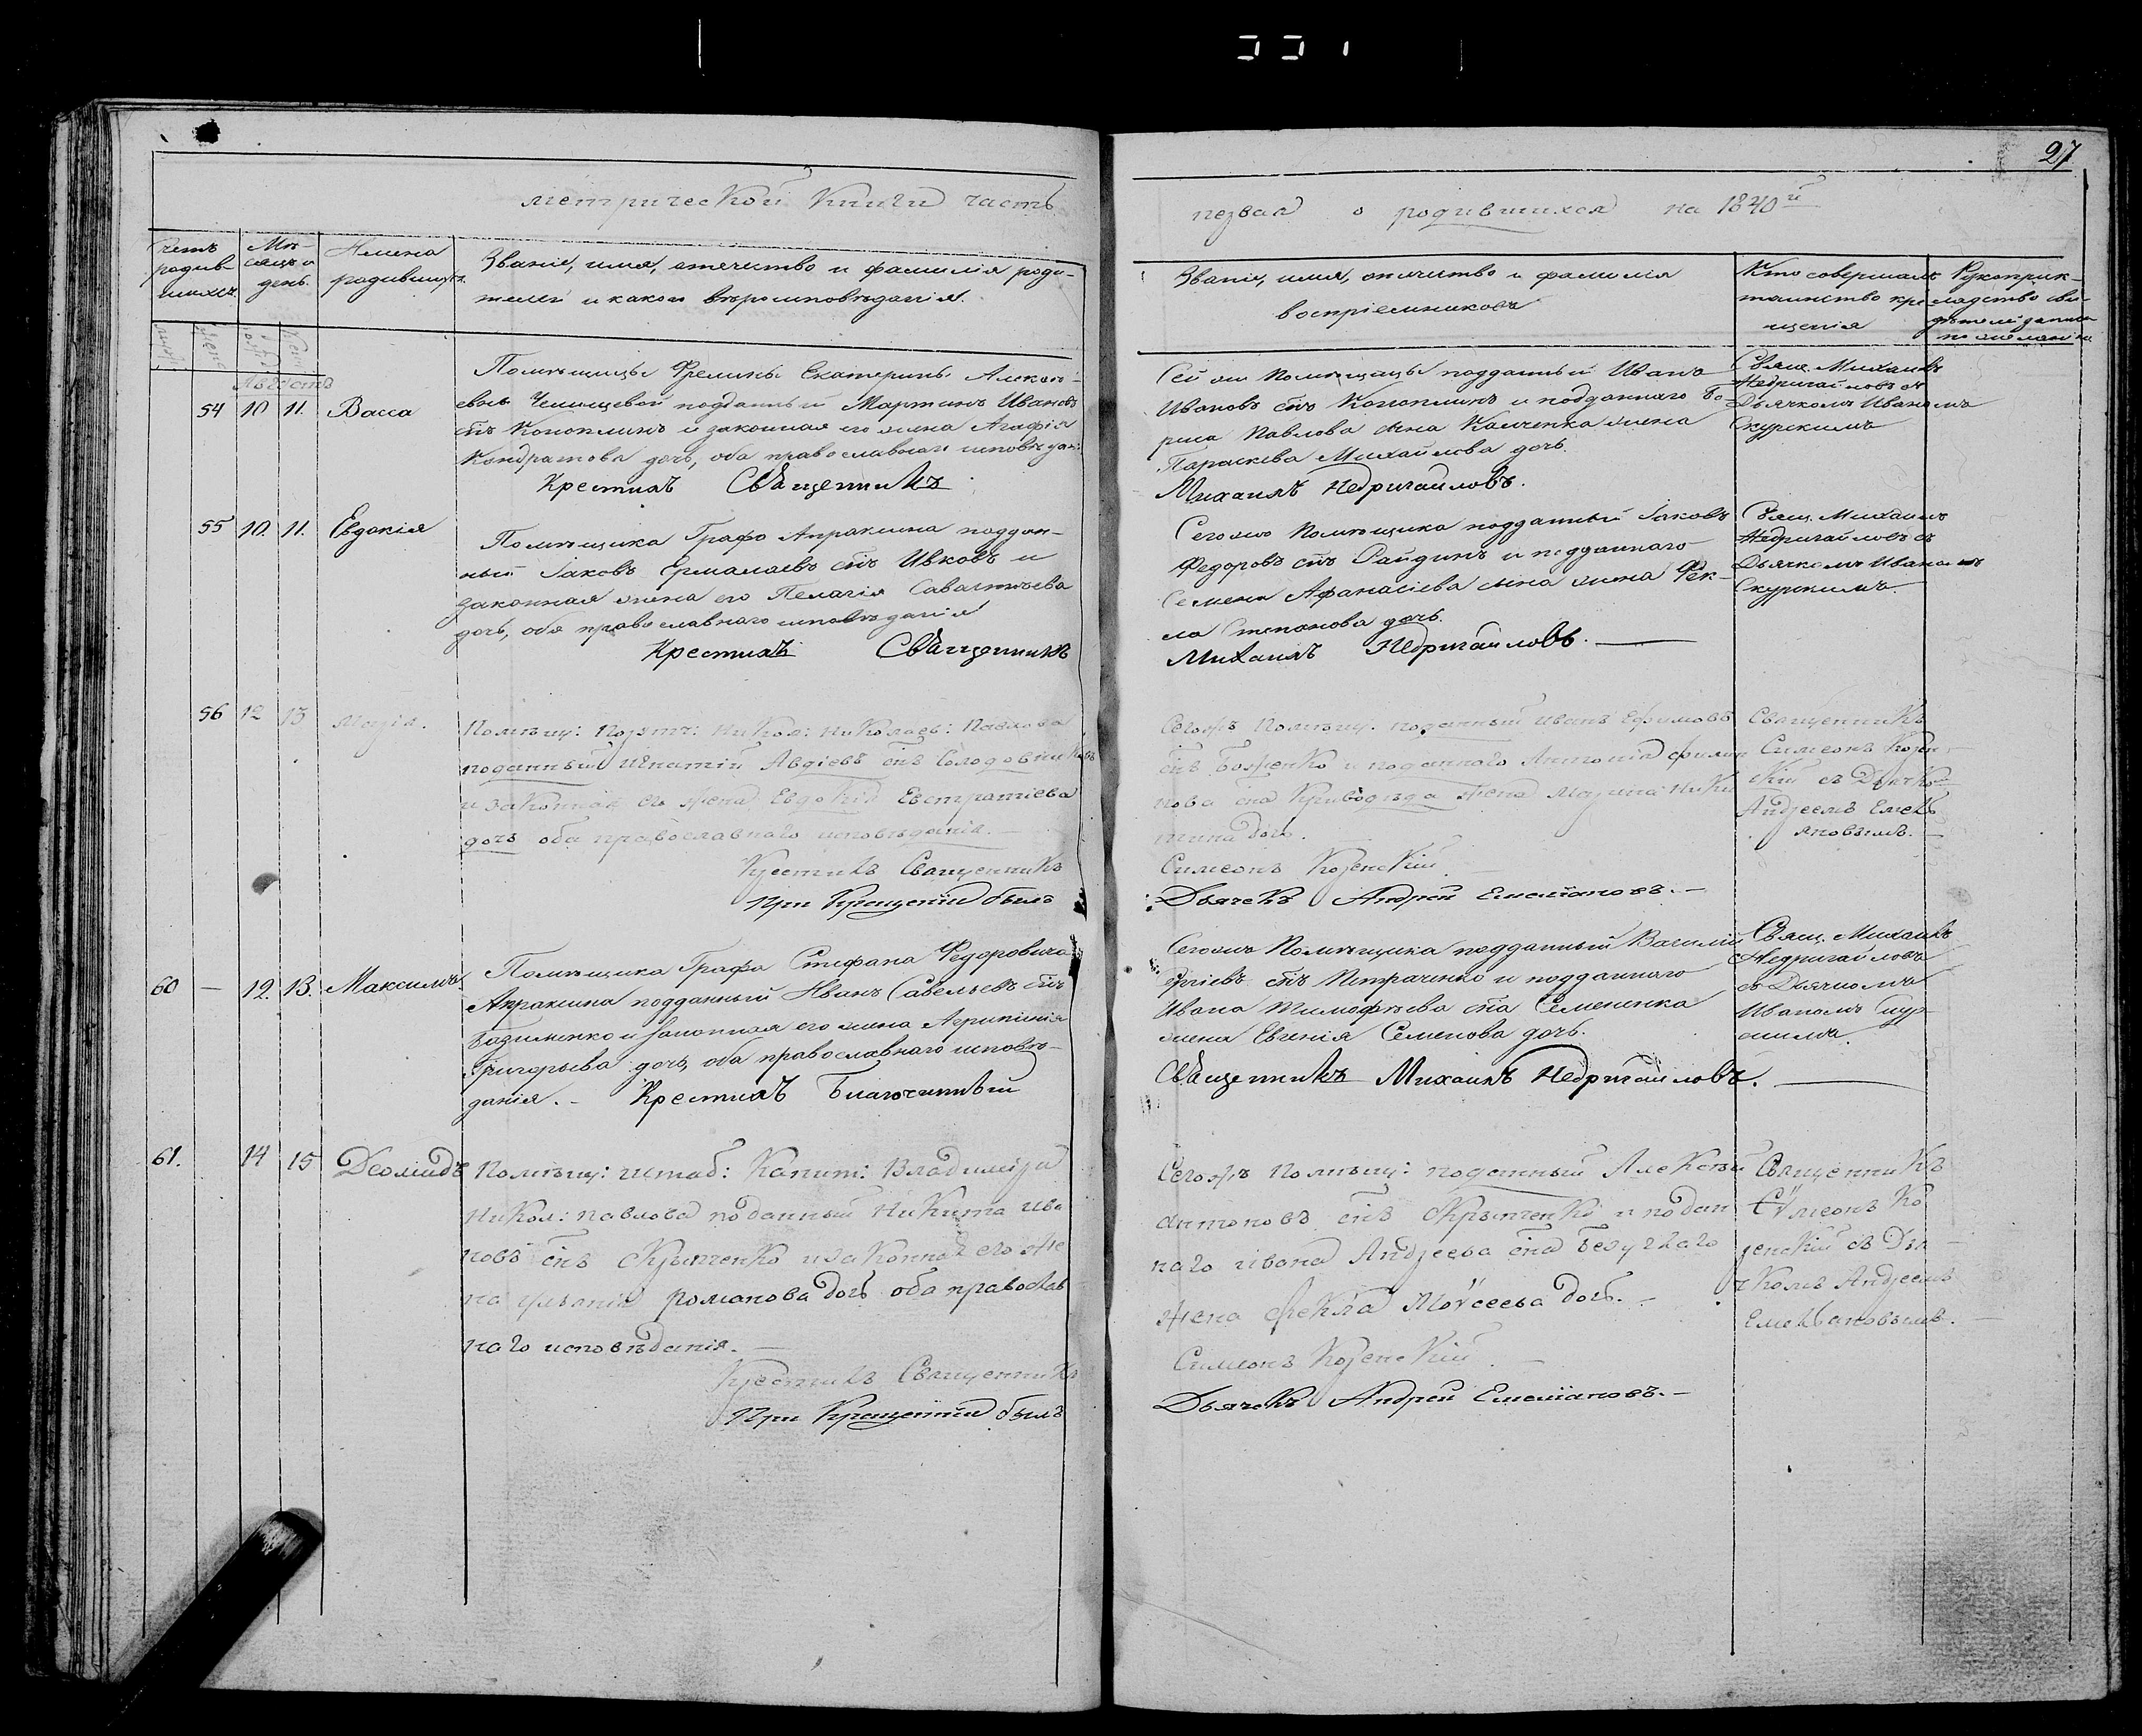 27
метрической книги часть
первая о родившихся на 1840й
Счетъ родив-шихся
Мѣ-сяцъ и день.
Имена родившихся.
Званіе, имя, отечество и фамилія роди-
телей и какого вѣроисповѣданія.
Званіе, имя, отечество и фамилія
воспріемниковъ
Кто совершалъ
таинство кре
щенія
Рукоприк-
ладство сви-
дѣтелей записи
по желанію
Августъ
54 10 11. Васса
Помѣщицы Фрелины Екатерины Алексѣ-
евны Челищевой подданный Мартинъ Ивановъ
снъ Коноплинъ и законная его жена Агафія
Кондратова дочь, оба православнаго исповѣдан:
Крестилъ Священникъ
Сей же Помѣщицы подданный Иванъ
Ивановъ снъ Коноплинъ и подданнаго Бо-
риса Павлова сына жена
Параскева Михайлова дочь.
Михаилъ Недригайловъ.
Свящ. Михаилъ
Недригайловъ съ
Дьячкомъ Иваномъ
Скурскимъ
55 10. 11. Евдокія
Помѣщика Графа Апраксина поддан-
ный Іаковъ Ермолаевъ снъ Ивковъ и
законная жена его Пелагія Савастьева
дочь, оба православнаго исповѣданія
Крестилъ Священникъ
Сегоже Помѣщика подданный Іаковъ
Федоровъ снъ и подданнаго
Семена Афанасіева сына жена Фек-
ла Степанова дочь.
Михаилъ Недригайловъ.
Свящ. Михаилъ
Недригайловъ съ
Дьячкомъ Иваномъ
Скурскимъ.
56 12 13 Марія.
Помѣщ: Порутч: Никол: Николаев: Павлова
поданный Игнатій Авдіевъ снъ Солодовниковъ
и законная его жена Евдокія Евстратіева
дочь оба православнаго исповѣданія.
Крестилъ Священникъ
При Крещеніи былъ
Сегожъ Помѣщ: поданный Иванъ Ефимовъ
снъ Боженко и поданнаго Антонія Филип
пова сна Криводѣда жена Марина Ники
тина дочь.
Симеонъ Коренскій
Дьячекъ Андрей Емеліановъ.
Священникъ
Симеонъ Корен
скій съ Дьячко
Андреемъ Емель
яновымъ.
60 — 12. 13. Максимъ
Помѣщика Графа Стефана Федоровича
Апраксина подданный Иванъ Савельевъ снъ
и законная его жена Агрипинія
Григорьева дочь, оба православнаго исповѣ-
данія. Крестилъ Благочинный
Сегоже Помѣщика подданный Василій
Сергіевъ снъ Петраченко и подданнаго
Ивана Тимофѣева сна Семененка
жена Евгенія Семенова дочь.
Священникъ Михаилъ Недригайловъ.
Свящ. Михаилъ
Недригайловъ
съ Дьячкомъ
Иваномъ Скур-
скимъ.
61. 14 15 Деомидъ
Помѣщ: штаб: Капит: Владиміра
Никол: Павлова поданный Никита Ива
новъ снъ Скрыпченко и законная его же
на Ульянія Романова дочь оба православ
наго исповѣданія.
Крестилъ Священникъ
При Крещеніи былъ
Сегожъ Помѣщ: поданный Алексѣй
Антоновъ снъ Скрыпченко и подан
наго Ивана Андреева сна Безуглаго
жена Фекла Моѵсеева дочь.
Симеонъ Коренскій
Дьячекъ Андрей Емеліановъ.
Священникъ
Сѵмеонъ Ко
ренскій съ Дья
чкомъ Андреемъ
Емельановымъ.